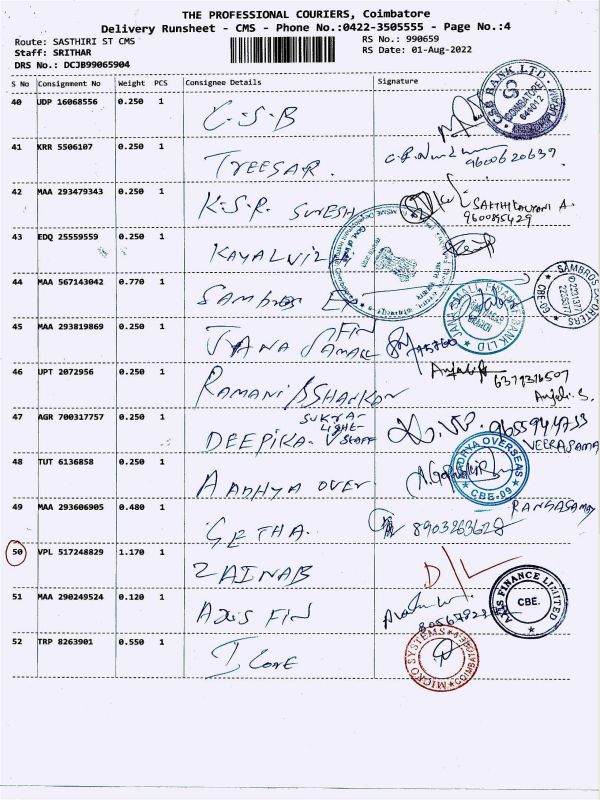 THE PROFESSIONAL COURIERS, Coimbatore
Delivery Runsheet - CMS - Phone No.:0422-3505555 - Page No.:4
Route: SASTHIRI ST CMS
RS No.: 990659
Staff: SRITHAR
RS Date: 01-Aug-2022
DRS No.: DCJB99065904
S No Consignment No Weight PCS Consignee Details Signature
40 UDP 16068556 0.250 1 C.S.B
CSB BANK LTD. COIMBATORE 641012
41 KRR 5506107 0.250 1 TREESAR. 9600620639
42 MAA 293479343 0.250 1 K.S.R. SURESH SAKTHI KALYANI A.
9600895429
43 EDQ 25559559 0.250 1 KAYALVIZHI
44 MAA 567143042 0.770 1 SAMBROS EX
SAMBROS EXPORTERS 2221377 CBE-
45 MAA 293819869 0.250 1 JANA SMALL FIN
JANA SMALL FINANCE BANK LTD
46 UPT 2072956 0.250 1 RAMANI SHANKAR
6379316507
Anjali.S.
47 AGR 700317757 0.250 1 DEEPIKA. V
SUKRA-
LIGHT-
STAFF
9655944733
VEERASAMA
48 TUT 6136858 0.250 1 AADHYA OVER
AADHYA OVERSEAS CBE-09
49 MAA 293606905 0.480 1 GETHA. 8903263628
RANGASAMY
50 VPL 517248829 1.170 1 ZAINAB D/L
51 MAA 290249524 0.120 1 AXIS FIN
AXIS FINANCE LIMITED CBE.
52 TRP 8263901 0.550 1 I CORE
MICRO SYSTEMS